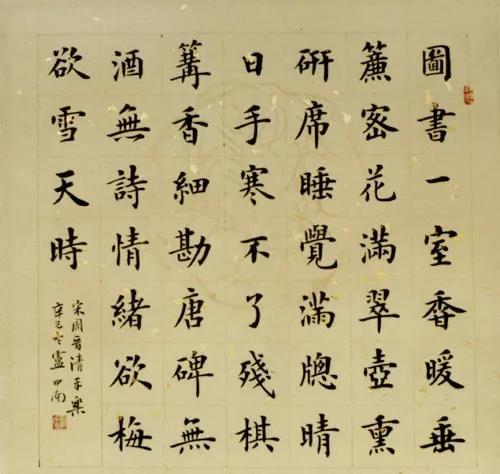 圖書一室香暖垂
簾密花滿翠壺熏
研席睡覺滿牕晴
日手寒不了殘棋
篝香細勘唐碑無
酒無詩情緒欲梅
欲雪天時
宋周晋清平樂
辛巳冬盧中南